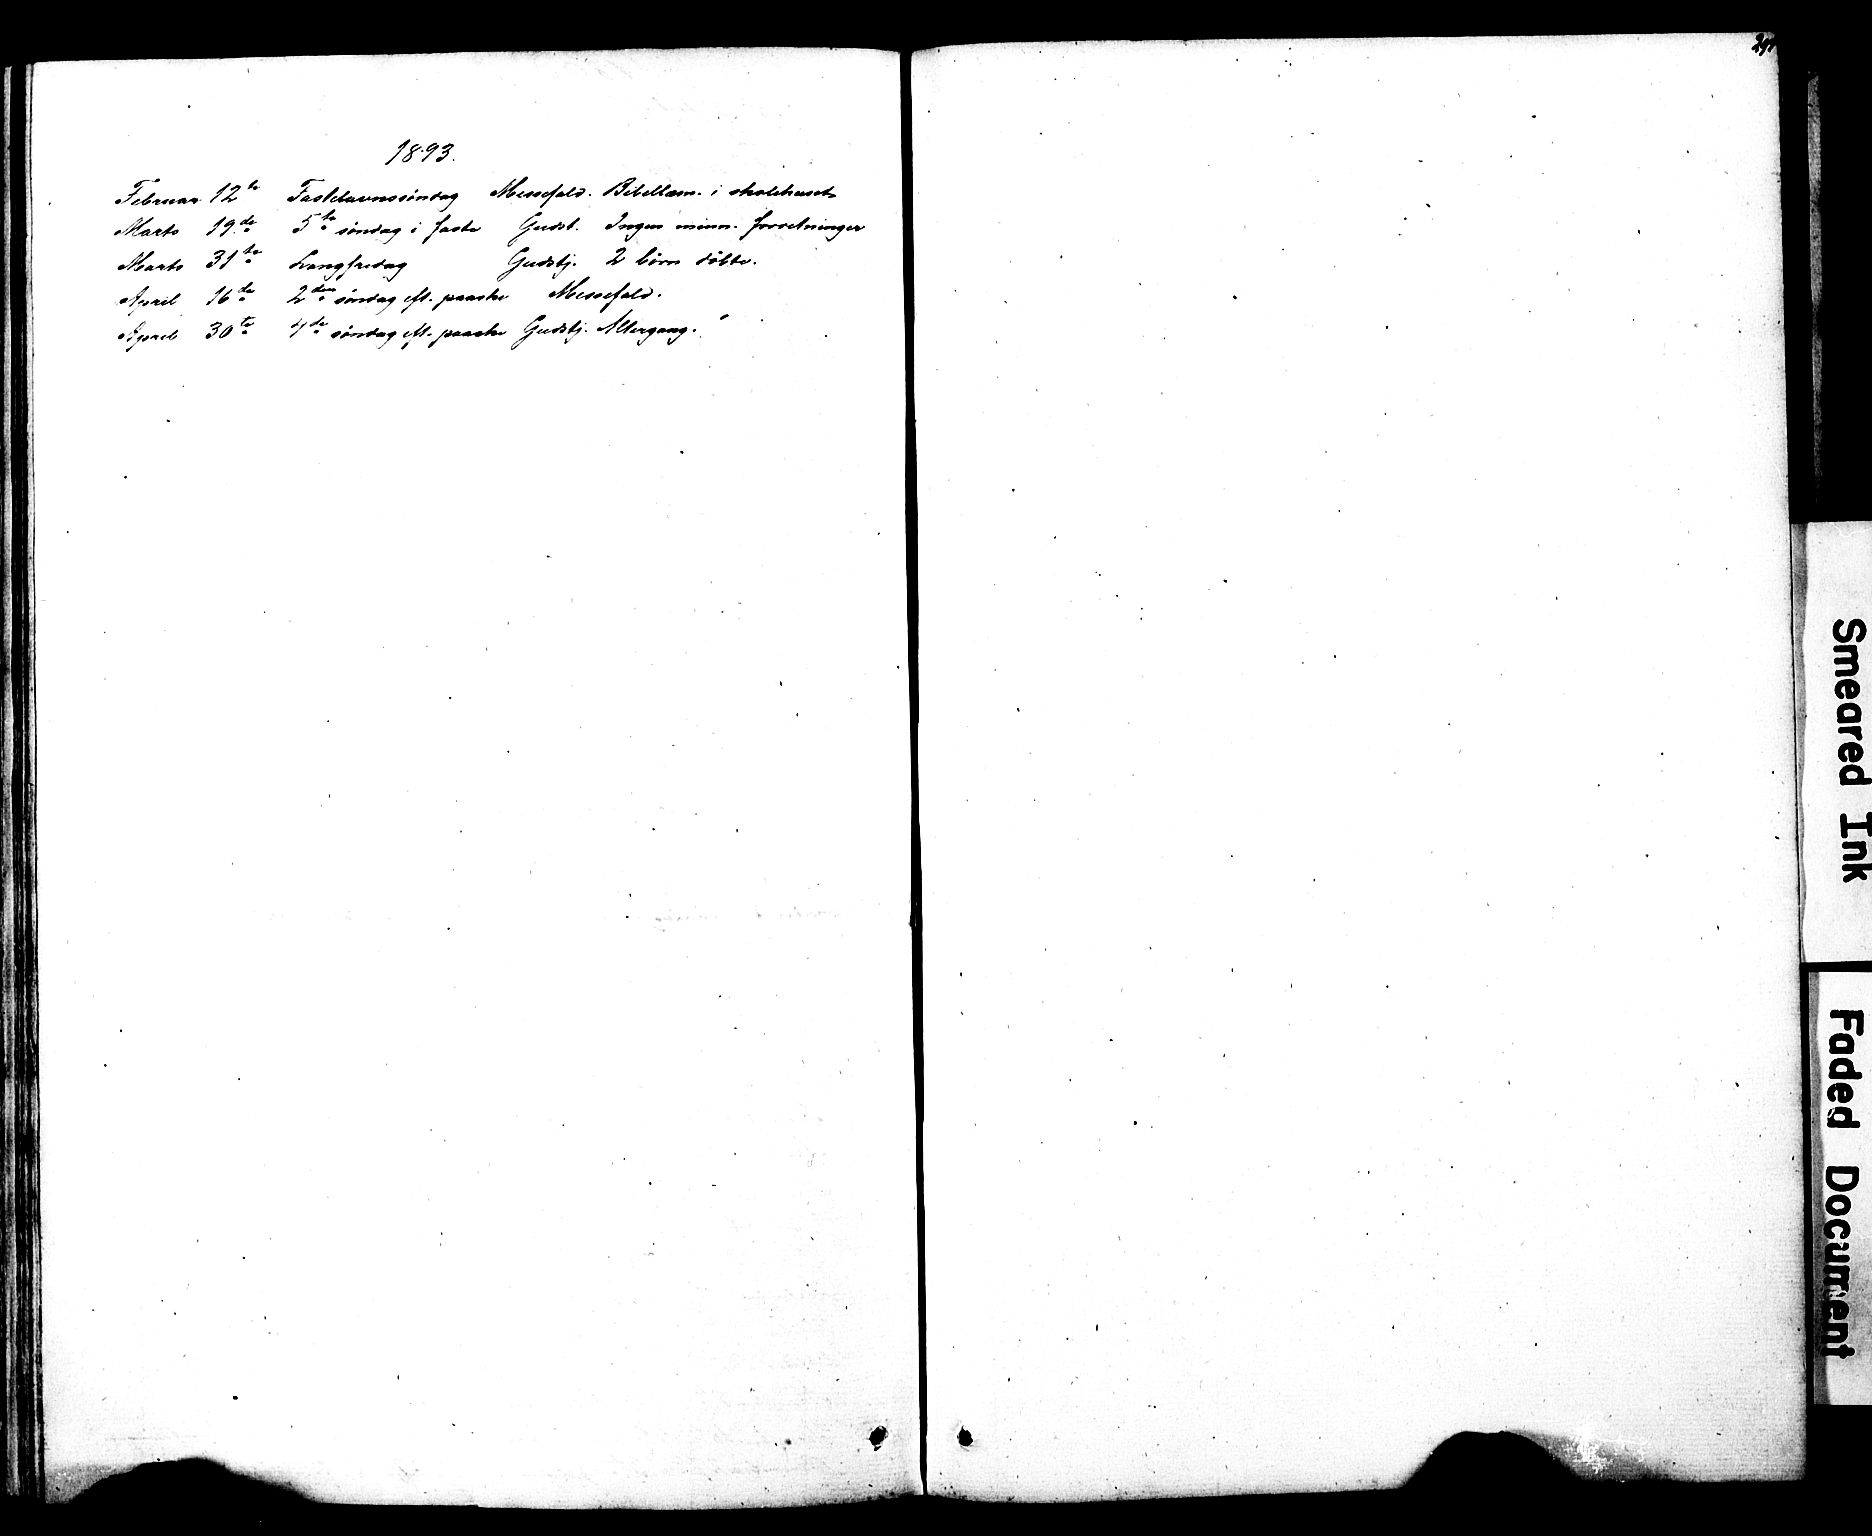 1893.
Februar 12te Fastelavnssöndag Messefald. Bibellæsn. i skolehuset
Marts 19.de 5te söndag i faste Gudst. Ingen minist. forretninger
Marts 31te Langfredag Gudstj. 2 börn döbte.
April 16de 2den söndag eft. paaske Messefald.
April 30te 4de söndag eft. paaske Gudstj. Altergang.
Smeared Ink
Faded Document